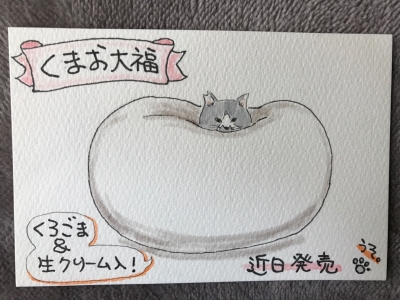 くまお大福
くろごま
&
生クリーム入!
近日発売
うろ。